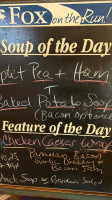 Fox on the Run
Soup of the Day
Split Pea + Ham
Baked Potato Soup
(Bacon optional)
Feature of the Day
Chicken Caesar Wrap
Parmesan Bacon
Garlic Dressing
Bacon
Soup or Garden Salad